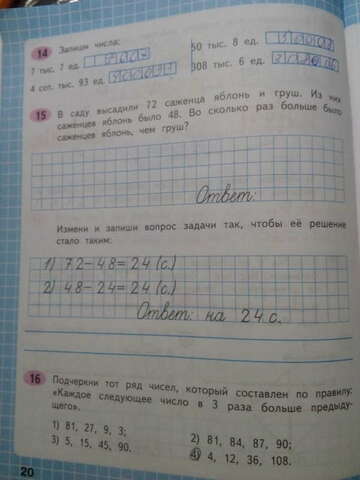 14 Запиши числа:
7 тыс. 7 ед.
50 тыс. 8 ед.
4 сот. тыс. 93 ед.
308 тыс. 6 ед.
15 В саду высадили 72 саженца яблонь и груш. Из них
саженцев яблонь было 48. Во сколько раз больше было
саженцев яблонь, чем груш?
Ответ:
Измени и запиши вопрос задачи так, чтобы её решение
стало таким:
1) 72–48=24 (с.)
2) 48–24=24 (с.)
Ответ: на 24 с.
16 Подчеркни тот ряд чисел, который составлен по правилу:
«Каждое следующее число в 3 раза больше предыду-
щего».
1) 81, 27, 9, 3;
2) 81, 84, 87, 90;
3) 5, 15, 45, 90.
4) 4, 12, 36, 108.
20